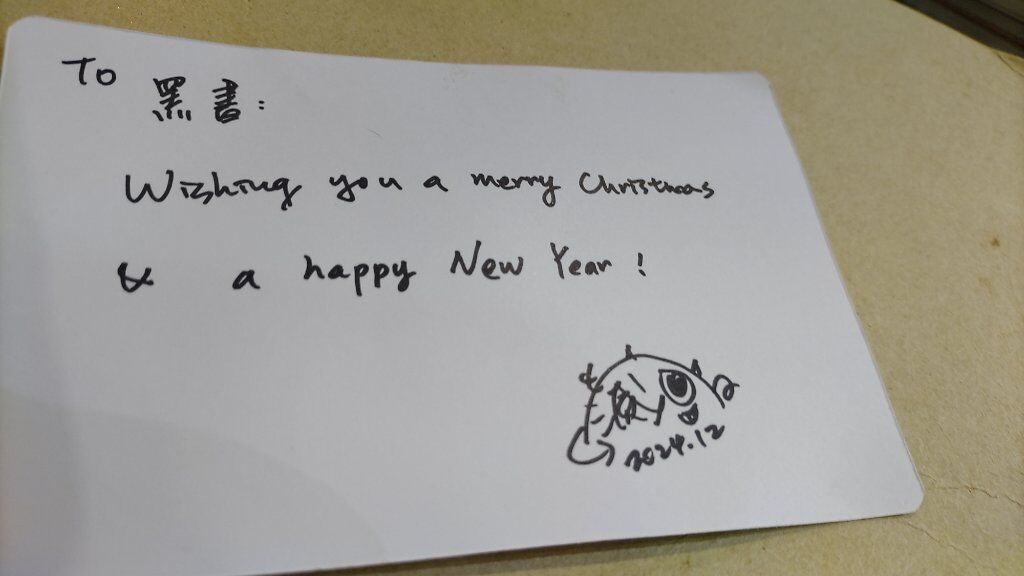 To
黑書:
Wishing you a merry Christmas
& a happy New Year!
2024.12